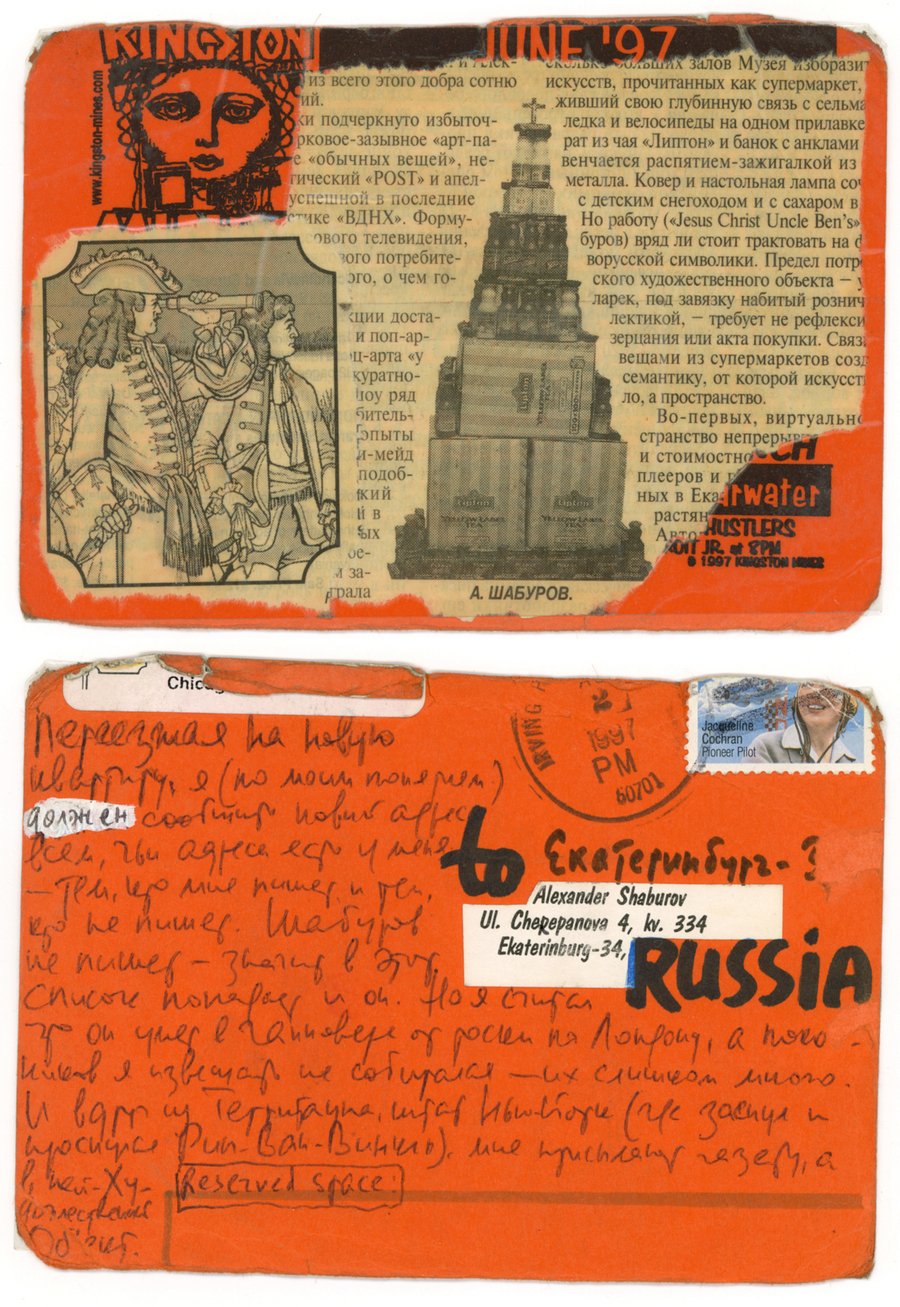 KINGSTON
JUNE '97
www.kingston-mines.com
из всего этого добра сотню
ий.
ки подчеркнуто избыточ-
рково-зазывное «арт-па-
е «обычных вещей», не-
гический «POST» и апел-
успешной в последние
стике «ВДНХ». Форму-
сового телевидения,
вого потребите-
ого, о чем го-
кции доста-
и поп-ар-
ц-арта «у
куратно-
шоу ряд
битель-
опыты
и-мейд
подоб-
кий
й в
ых
ое-
м за-
грала
больших залов Музея изобразит
искусств, прочитанных как супермаркет,
живший свою глубинную связь с сельма
ледка и велосипеды на одном прилавке
рат из чая «Липтон» и банок с анклами
венчается распятием-зажигалкой из
металла. Ковер и настольная лампа соч
с детским снегоходом и с сахаром в
Но работу («Jesus Christ Uncle Ben's»
буров) вряд ли стоит трактовать на ф
ворусской символики. Предел потр
ского художественного объекта – у
ларек, под завязку набитый рознич
лектикой, – требует не рефлекси
зерцания или акта покупки. Связ
вещами из супермаркетов созд
семантику, от которой искусст
ло, а пространство.
Во-первых, виртуальн
странство непрерыв
и стоимостно
плееров и
ных в Ека
растян
Авто
Lipton
YELLOW LABEL
TEA
Lipton
YELLOW LABEL
TEA
Lipton
YELLOW LABEL
TEA
А. ШАБУРОВ.
rwater
HUSTLERS
OIT JR. at 8PM
© 1997 KINGSTON MINES
Chicag
Переезжая на новую
квартиру, я (по моим понятиям)
должен сообщить новый адрес
всем, чьи адреса есть у меня
– тем, кто мне пишет и тем,
кто не пишет. Шабуров
не пишет – значит в этот
список попадает и он. Но я считал
что он умер в Ганновере от тоски по Лондону, а поко-
йников я извещать не собирался – их слишком много.
И вдруг из Территауна, штат Нью-Йорк (где заснул и
проснулся Рип-Ван-Винкль), мне присылают газету, а
в ней – Ху-
дожественный
Объект.
Reserved space:
IRVING
1997
PM
60701
Jacqueline
Cochran
Pioneer Pilot
to Екатеринбург-
Alexander Shaburov
Ul. Cherepanova 4, kv. 334
Ekaterinburg-34,
RUSSIA